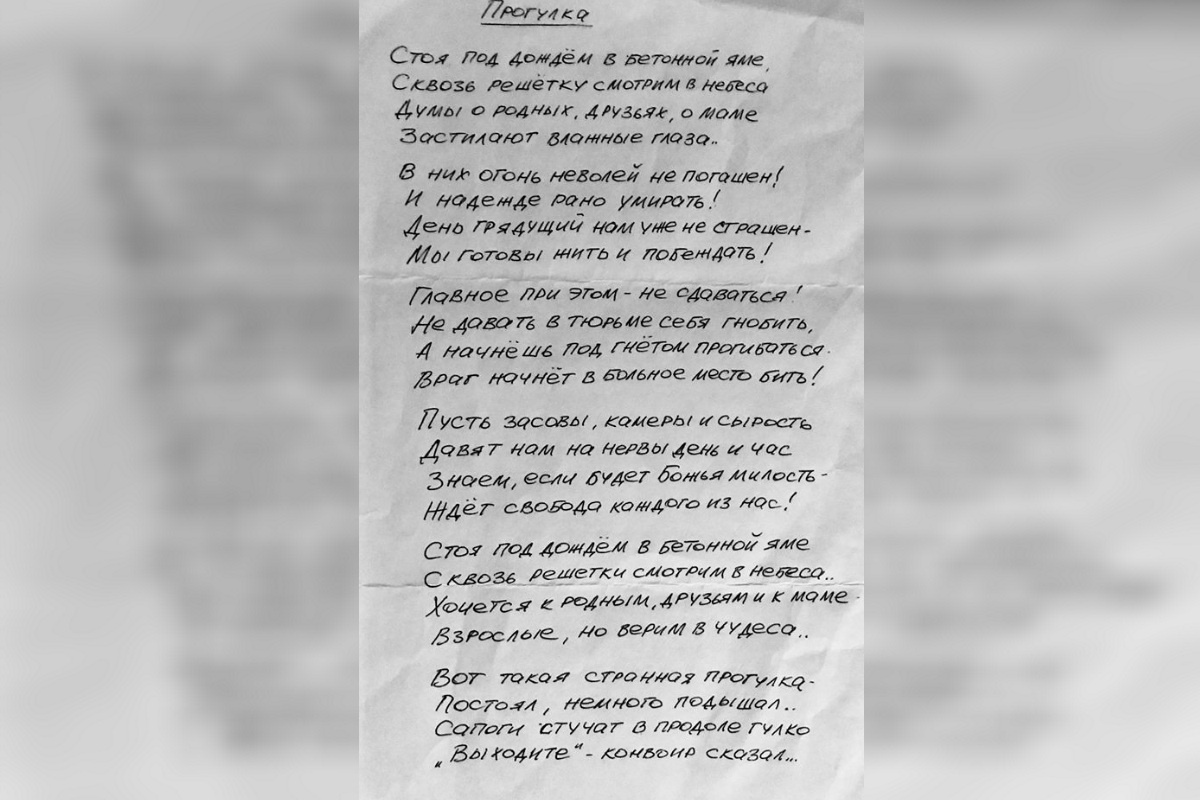 Прогулка
Стоя под дождём в бетонной яме,
Сквозь решётку смотрим в небеса
Думы о родных, друзьях, о маме
Застилают влажные глаза..
В них огонь неволей не погашен!
И надежде рано умирать!
День грядущий нам уже не страшен-
Мы готовы жить и побеждать!
Главное при этом - не сдаваться!
Не давать в тюрьме себя гнобить,
А начнёшь под гнётом прогибаться.
Враг начнёт в больное место бить!
Пусть засовы, камеры и сырость
Давят нам на нервы день и час
Знаем, если будет Божья милость-
Ждёт свобода каждого из нас!
Стоя под дождём в бетонной яме
Сквозь решетки смотрим в небеса..
Хочется к родным, друзьям и к маме-
Взрослые, но верим в чудеса..
Вот такая странная прогулка-
Постоял, немного подышал..
Сапоги стучат в продоле гулко
„Выходите“ - конвоир сказал...